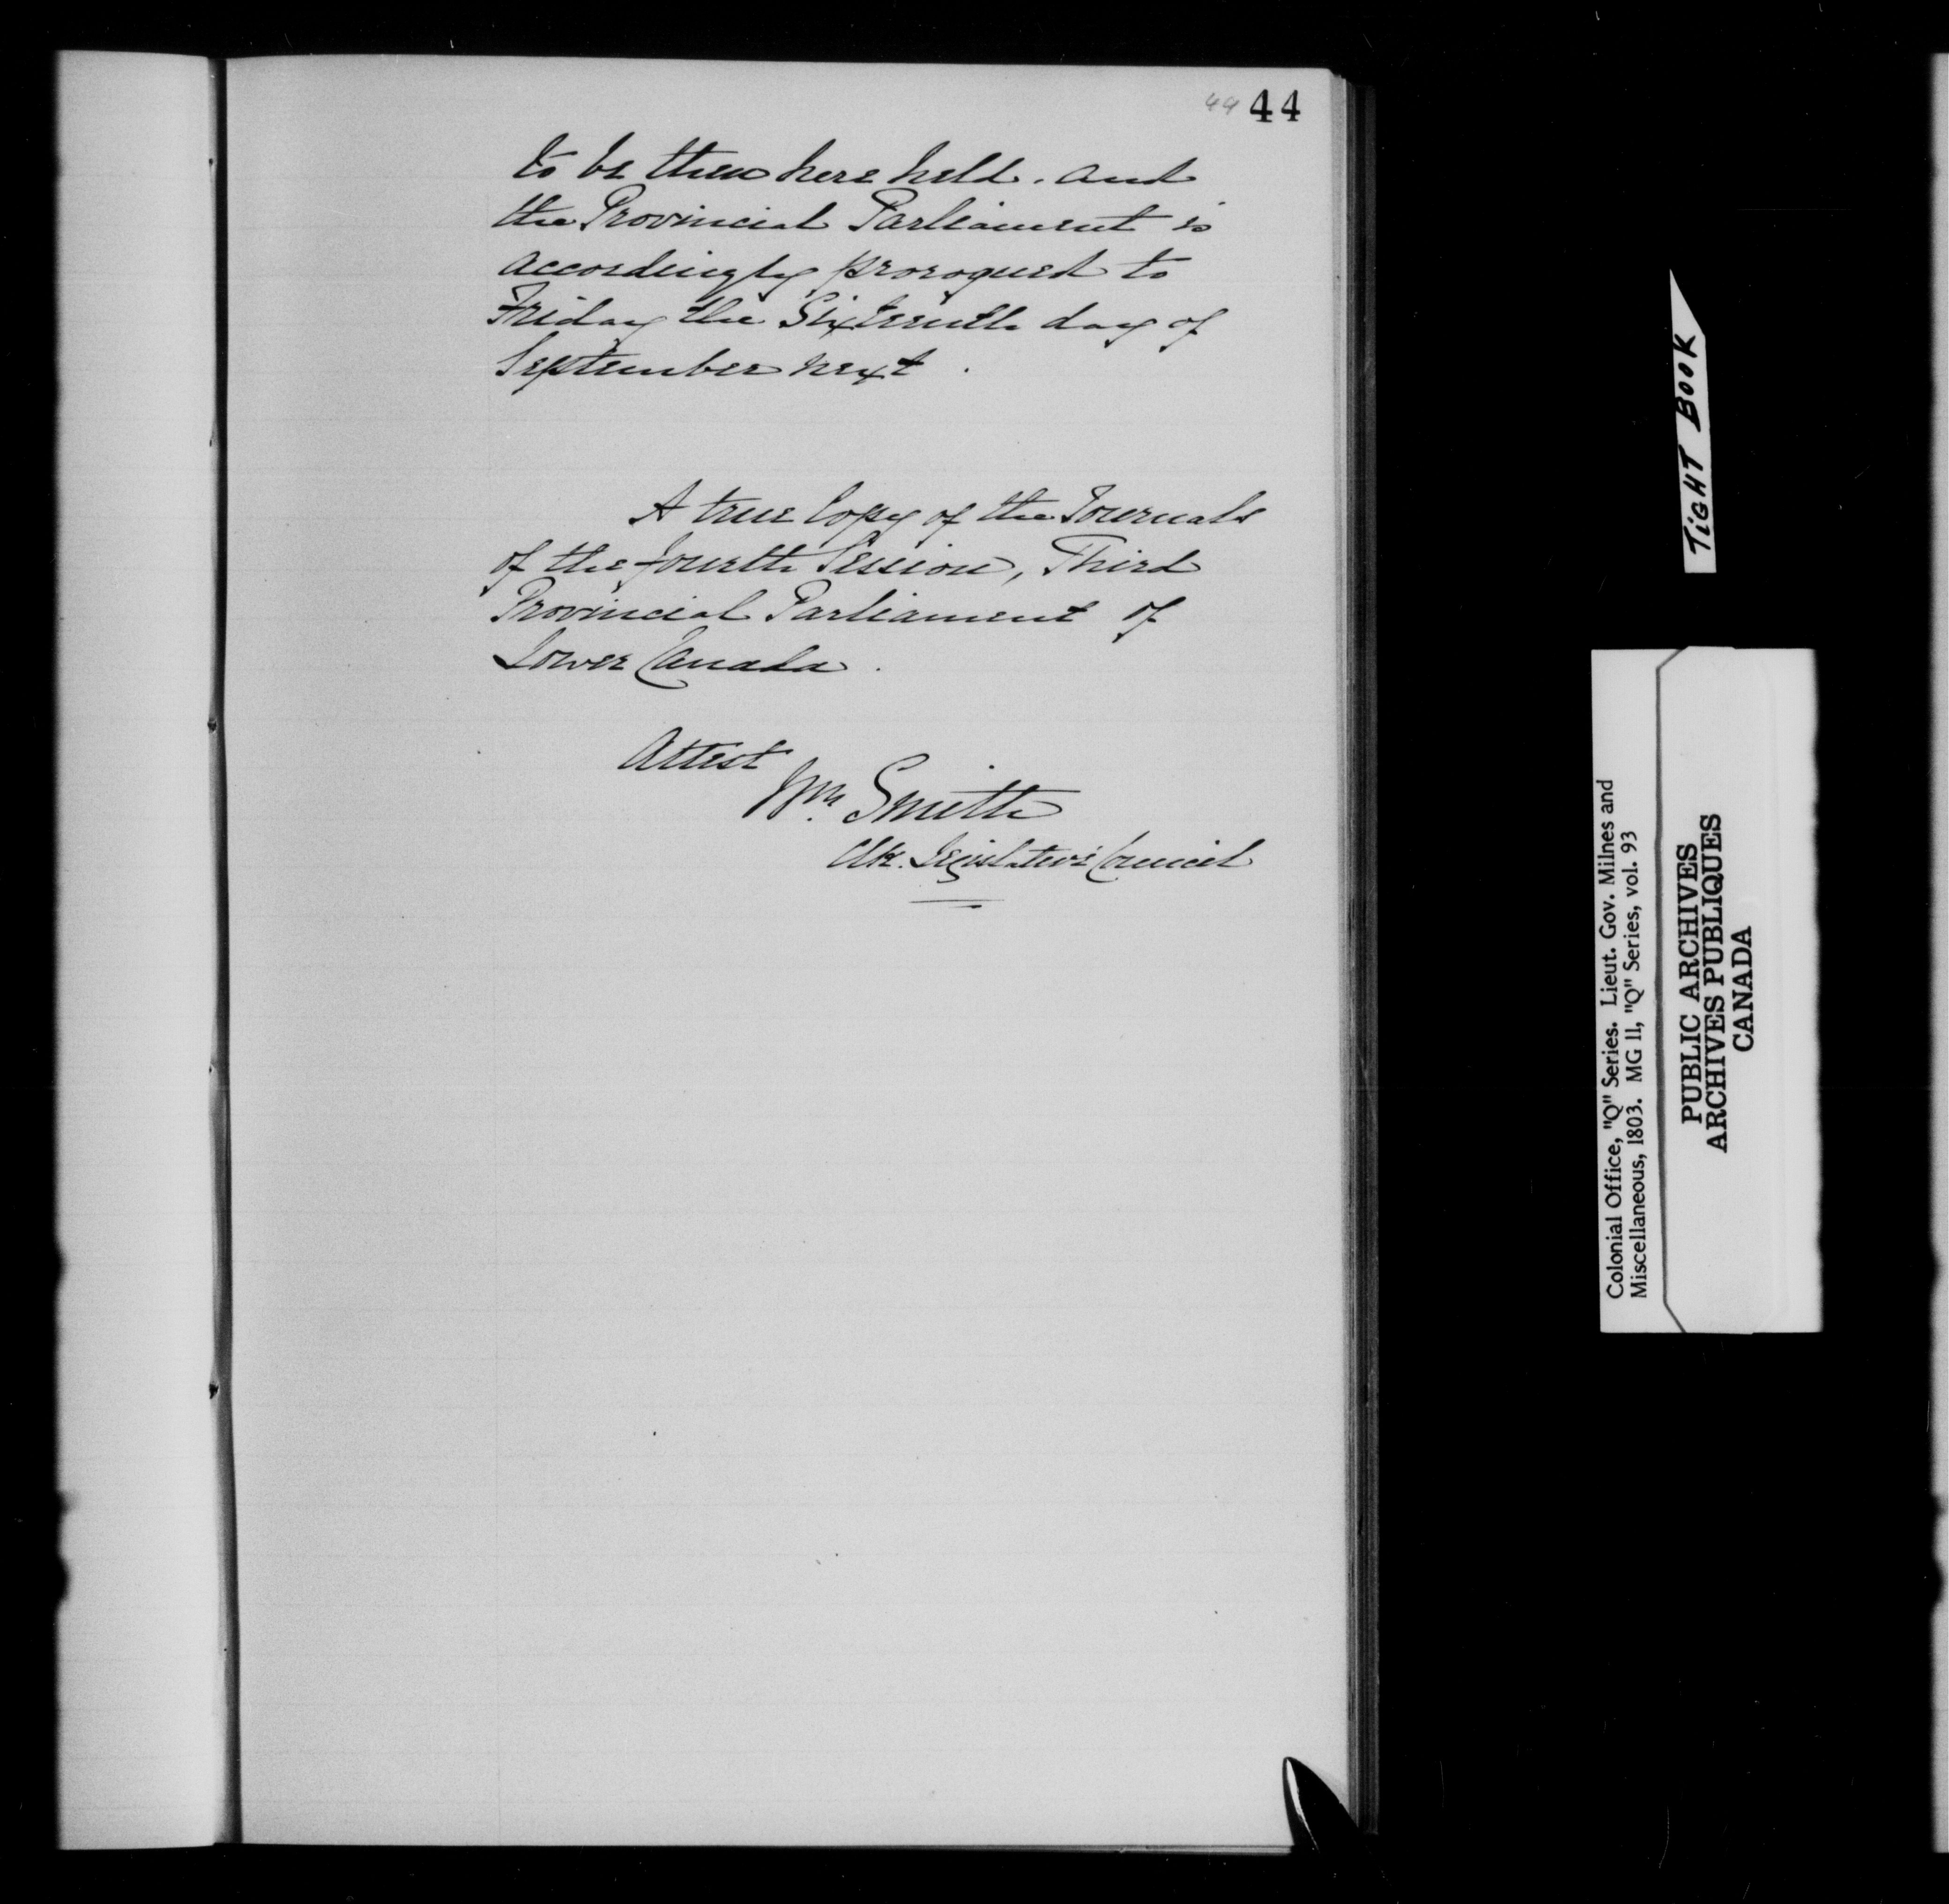 44 44
to be then here held. and
the Provincial Parliament is
accordingly prorogued to
Friday the Sixteenth day of
September next.
A true Copy of the Journals
of the fourth Session, Third
Provincial Parliament of
Lower Canada.
Attest
Wm. Smith
Clk. Legislative Council
TIGHT BOOK
Colonial Office, "Q" Series. Lieut. Gov. Milnes and
Miscellaneous, 1803. MG 11, "Q" Series, vol. 93
PUBLIC ARCHIVES
ARCHIVES PUBLIQUES
CANADA